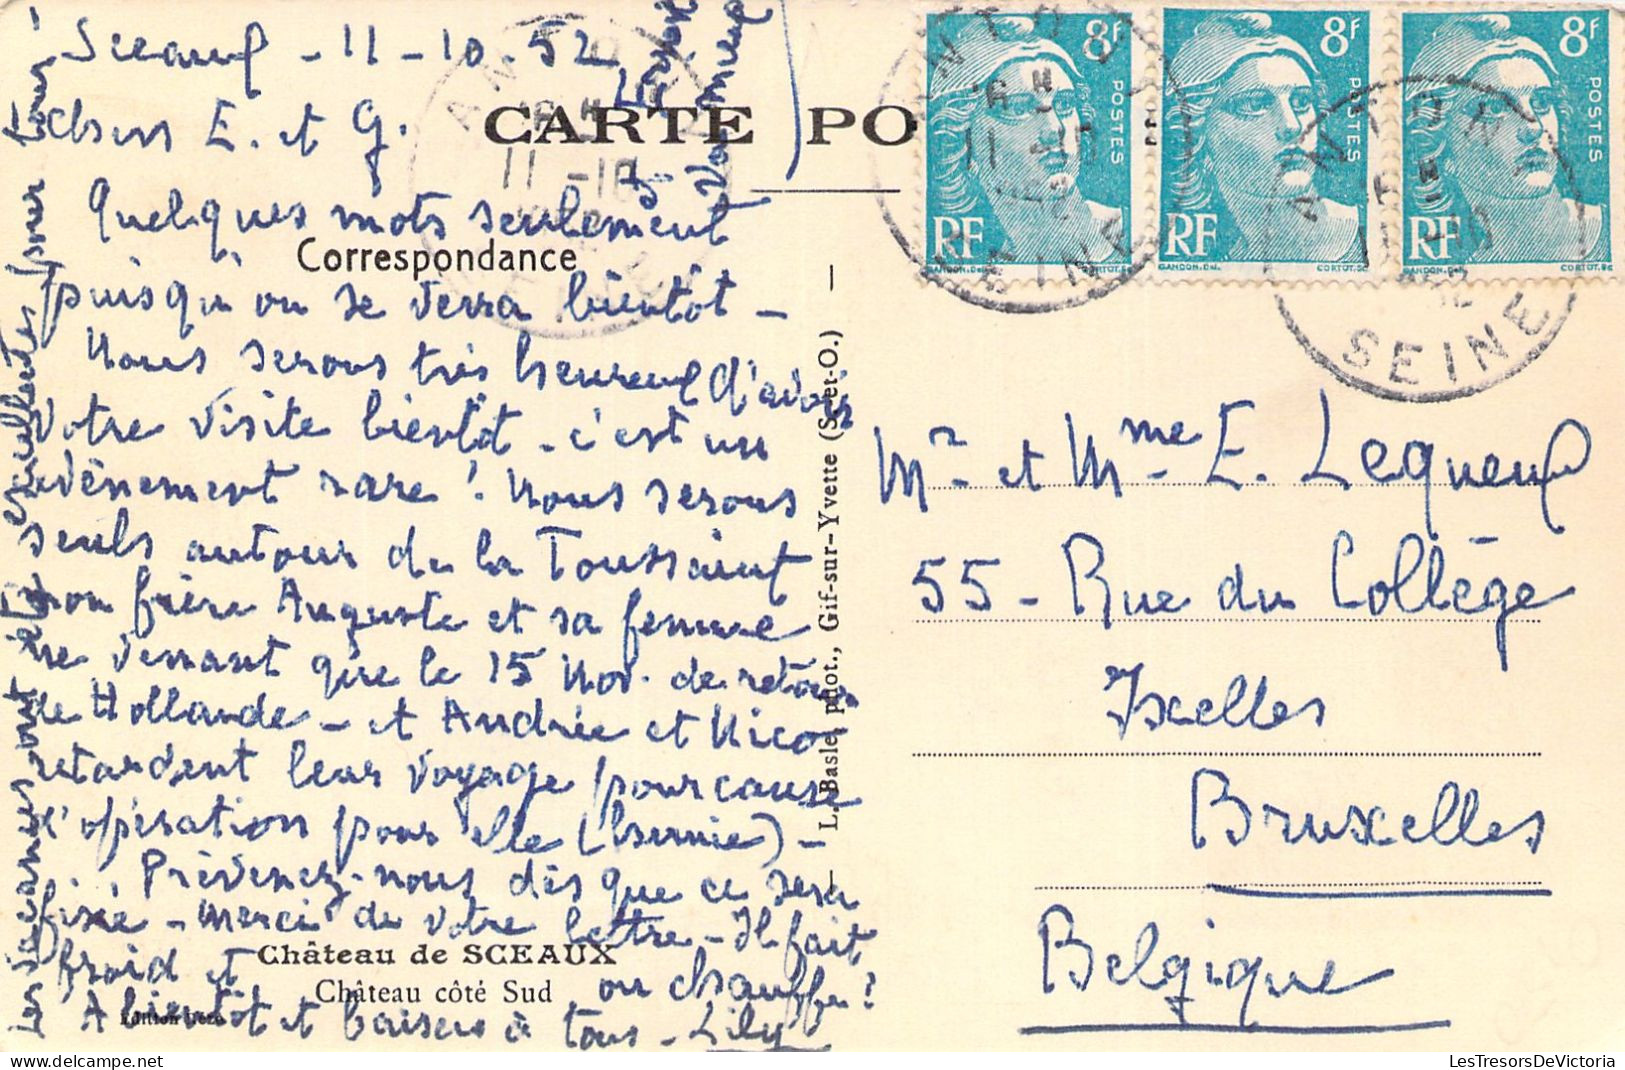 Sceaux - 11-10-52
Chers E. et G.
Quelques mots seulement
puisqu'on se verra bientôt -
Nous serons très heureux d'avoir
votre visite bientôt - c'est un
évènement rare ! Nous serons
seuls autour de la Toussaint
mon frère Auguste et sa femme
ne venant que le 15 Nov. de retour
de Hollande - et Andrée et Nico
retardent leur voyage pour cause
d'opération pour elle (hernie) -
Prévenez-nous dès que ce sera
fixé - Merci de votre lettre - Il fait
froid et on chauffe !
A bientôt et baisers à tous - Lily
Les vacances ont été excellentes pour tous
CARTE PO
Correspondance
Château de SCEAUX
Château côté Sud
L. Basle, phot., Gif-sur-Yvette (S.-et-O.)
8F
POSTES
RF
GANDON.Del.
8F
POSTES
RF
GANDON.Del.
CORTOT.Sc
8F
POSTES
RF
GANDON.Del.
CORTOT.Sc
ANTONY
11-10
SEINE
Mr et Mme E. Lequeux
55 - Rue du Collège
Ixelles
Bruxelles
Belgique
LesTresorsDeVictoria